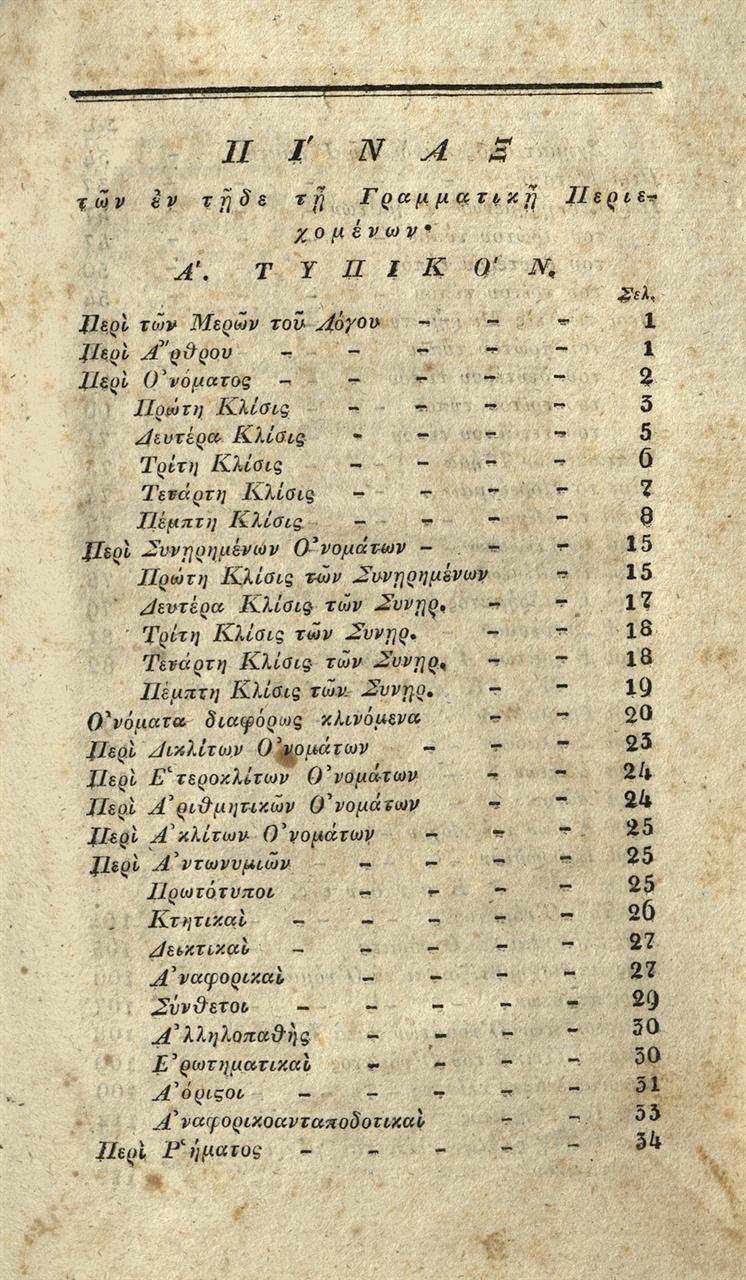 ΠΊΝΑΞ
τῶν ἐν τῇδε τῇ Γραμματικῇ Περιε-
χομένων·
Α'. ΤΥΠΙΚΟ'Ν.
Σελ.
Περὶ τῶν Μερῶν τοῦ Λόγου - - - 1
Περὶ Ἄρθρου - - - - - 1
Περὶ Ὀνόματος - - - - - 2
Πρώτη Κλίσις - - - - 3
Δευτέρα Κλίσις - - - - 5
Τρίτη Κλίσις - - - - 6
Τετάρτη Κλίσις - - - - 7
Πέμπτη Κλίσις - - - - 8
Περὶ Συνῃρημένων Ὀνομάτων - - - 15
Πρώτη Κλίσις τῶν Συνῃρημένων - 15
Δευτέρα Κλίσις τῶν Συνῃρ. - - 17
Τρίτη Κλίσις τῶν Συνῃρ. - - 18
Τετάρτη Κλίσις τῶν Συνῃρ. - - 18
Πέμπτη Κλίσις τῶν Συνῃρ. - - 19
Ὀνόματα διαφόρως κλινόμενα - - 20
Περὶ Δικλίτων Ὀνομάτων - - - 23
Περὶ Ἑτεροκλίτων Ὀνομάτων - - 24
Περὶ Ἀριθμητικῶν Ὀνομάτων - - 24
Περὶ Ἀκλίτων Ὀνομάτων - - - 25
Περὶ Ἀντωνυμιῶν - - - - 25
Πρωτότυποι - - - - 25
Κτητικαὶ - - - - - 26
Δεικτικαὶ - - - - - 27
Ἀναφορικαὶ - - - - 27
Σύνθετοι - - - - - 29
Ἀλληλοπαθὴς - - - - 30
Ἐρωτηματικαὶ - - - - 30
Ἀόριϛοι - - - - - 31
Ἀναφορικοανταποδοτικαὶ - - 33
Περὶ Ῥήματος - - - - - 34